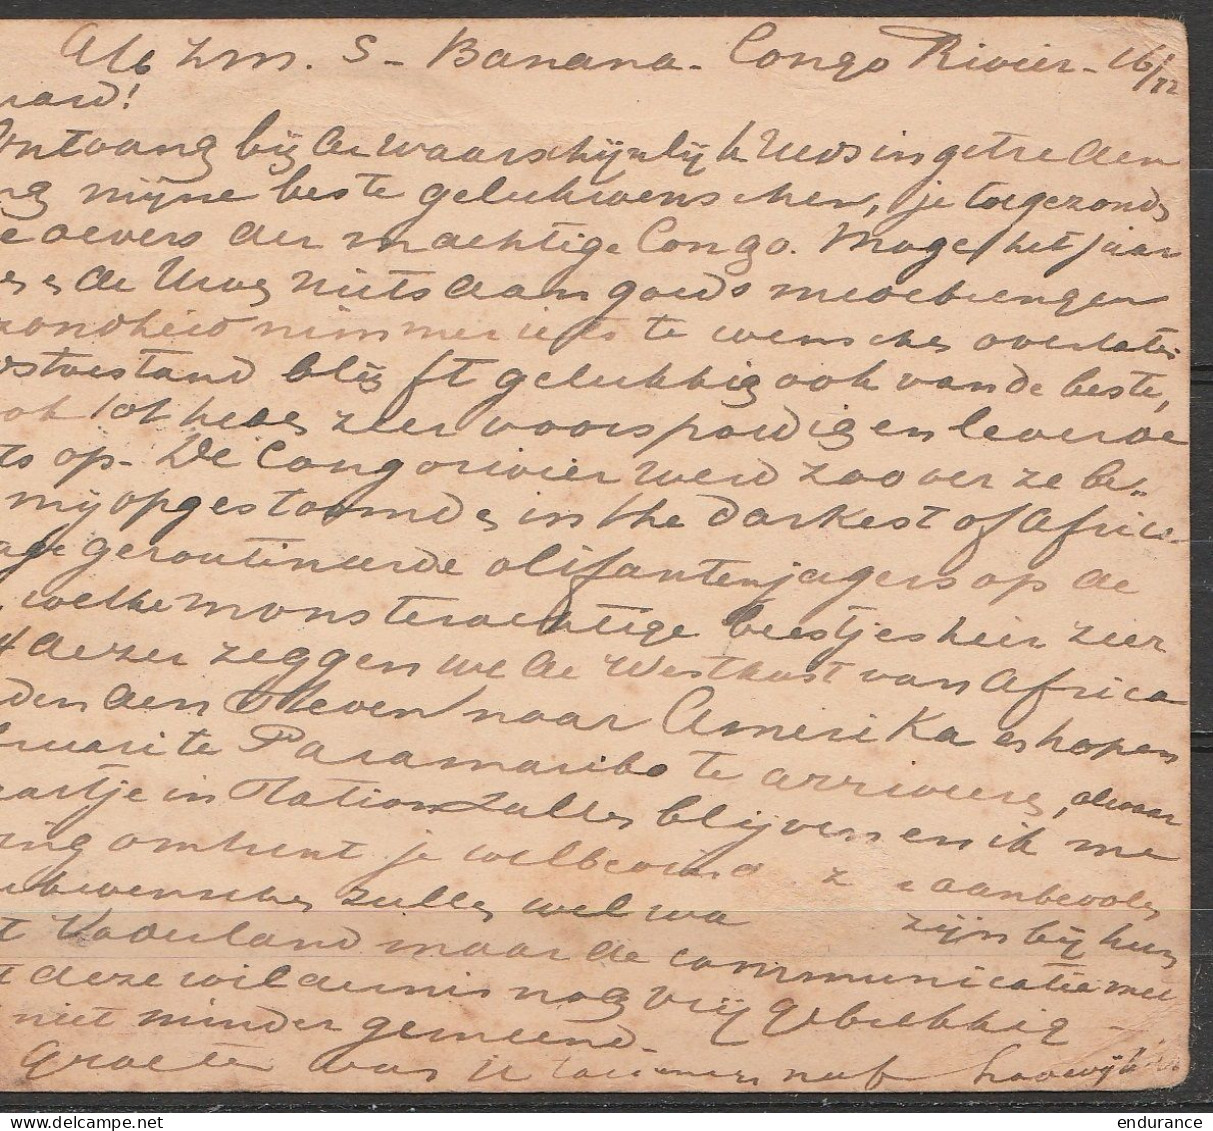 Zm. S - Banana - Congo Rivier - 16/
Ontvang bij de waarschijnlijk reeds ingetreden
mijne beste gelukwenschen, je toegezonde
oevers der machtige Congo. Moge het jaar
de niets dan goeds medebrengen
zondheid nimmer iets te wenschen overlaten
stoestand blijft gelukkig ook van de beste,
ook tot heden zeer voorspoedig en leverde
ts op - De Congorivier werd zoover ze be-
mij opgestoomd, in the darkest of Africa
geroutineerde olifantenjagers op de
, welke monsterachtige beestjes hier zeer
4 dezer zeggen we de Westkust van Africa
den den Steven naar Amerika en hopen
bruari te Paramaribo te arriveeren, alwaar
in Station zullen blijven en ik me
ing omtrent je welbevind aanbevolen
wenschen zullen wel wa zijn bij hun
t Vaderland maar de communicatie met
t deze wildernis nog vrij gebrekkig -
niet minder gemeend. -
Groeten van
delcampe.net
endurance